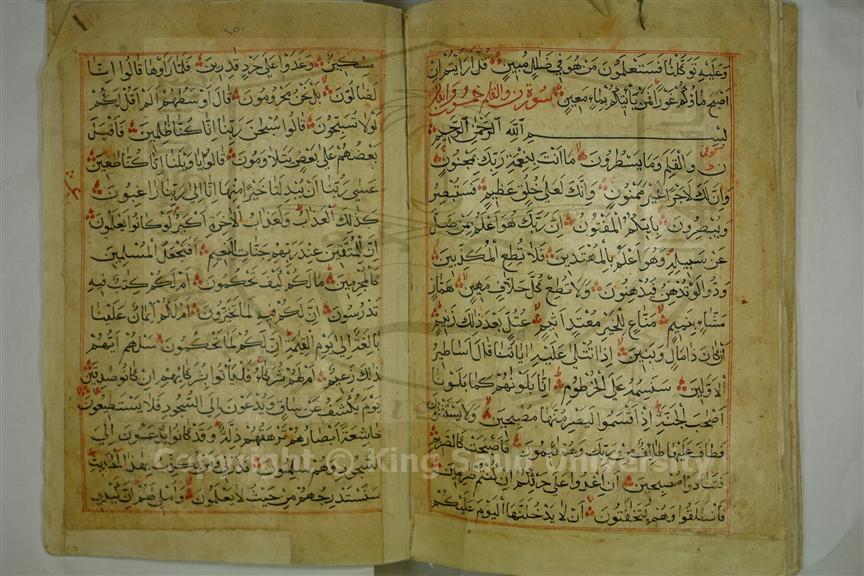 وعليه توكلنا فستعلمون من هو في ضلل مبين قل ارايتم ان
اصبح ماؤكم غورا فمن ياتيكم بماء معين سورة ن والقلم خمسون واثنان
بسم الله الرحمن الرحيم
ن والقلم وما يسطرون ما انت بنعمة ربك بمجنون
وان لك لاجرا غير ممنون وانك لعلى خلق عظيم فستبصر
ويبصرون بايكم المفتون ان ربك هو اعلم بمن ضل
عن سبيله وهو اعلم بالمهتدين فلا تطع المكذبين
ودوا لو تدهن فيدهنون ولا تطع كل حلاف مهين هماز
مشاء بنميم مناع للخير معتد اثيم عتل بعد ذلك زنيم
ان كان ذا مال وبنين اذا تتلى عليه اياتنا قال اساطير
الاولين سنسمه على الخرطوم انا بلونهم كما بلونا
اصحب الجنة اذ اقسموا ليصرمنها مصبحين ولا يستثنون
فطاف عليها طائف من ربك وهم نائمون فاصبحت كالصريم
فتنادوا مصبحين ان اغدوا على حرثكم ان كنتم صرمين
فانطلقوا وهم يتخفتون ان لا يدخلنها اليوم عليكم
مسكين وغدوا على حرد قدرين فلما راوها قالوا انا
لضالون بل نحن محرومون قال اوسطهم الم اقل لكم
لولا تسبحون قالوا سبحن ربنا انا كنا ظلمين فاقبل
بعضهم على بعض يتلاومون قالوا يا ويلنا انا كنا طغين
عسى ربنا ان يبدلنا خيرا منها انا الى ربنا راغبون
كذلك العذاب ولعذاب الاخرة اكبر لو كانوا يعلمون
ان للمتقين عند ربهم جنات النعيم افنجعل المسلمين
كالمجرمين ما لكم كيف تحكمون ام لكم كتب فيه
تدرسون ان لكم فيه لما تخيرون ام لكم ايمان علينا
بالغة الى يوم القيمة ان لكم لما تحكمون سلهم ايهم
بذلك زعيم ام لهم شركاء فلياتوا بشركائهم ان كانوا صدقين
يوم يكشف عن ساق ويدعون الى السجود فلا يستطيعون
خاشعة ابصارهم ترهقهم ذلة وقد كانوا يدعون الى
السجود وهم سلمون فذرني ومن يكذب بهذا الحديث
سنستدرجهم من حيث لا يعلمون واملي لهم ان كيدي
Copyright © King Saud University